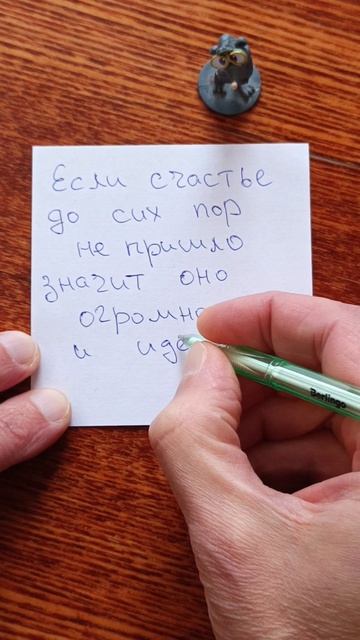 Если счастье
до сих пор
не пришло
значит оно
огромно
и иде
Berlingo